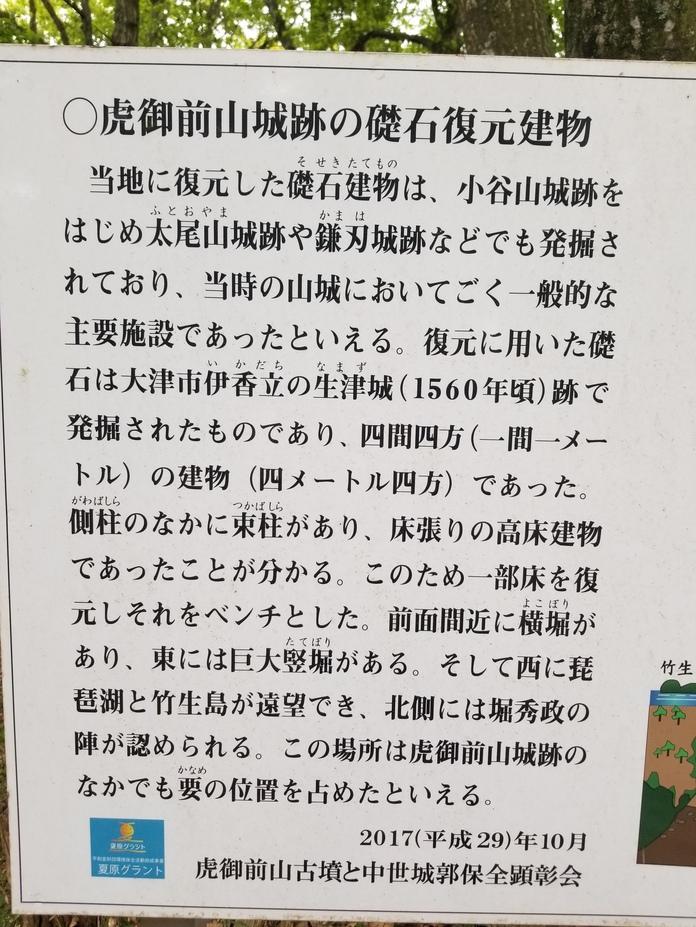 ○虎御前山城跡の礎石復元建物
そせきたてもの
当地に復元した礎石建物は、小谷山城跡を
ふとおやま かまは
はじめ太尾山城跡や鎌刃城跡などでも発掘さ
れており、当時の山城においてごく一般的な
主要施設であったといえる。復元に用いた礎
いかだち なまず
石は大津市伊香立の生津城(1560年頃)跡で
発掘されたものであり、四間四方(一間一メー
トル)の建物(四メートル四方)であった。
がわばしら つかばしら
側柱のなかに束柱があり、床張りの高床建物
であったことが分かる。このため一部床を復
元しそれをベンチとした。前面間近に横堀が
よこぼり
たてぼり
あり、東には巨大竪堀がある。そして西に琵
琶湖と竹生島が遠望でき、北側には堀秀政の
陣が認められる。この場所は虎御前山城跡の
かなめ
なかでも要の位置を占めたといえる。
2017(平成29)年10月
虎御前山古墳と中世城郭保全顕彰会
夏原グラント
夏原グラント
竹生